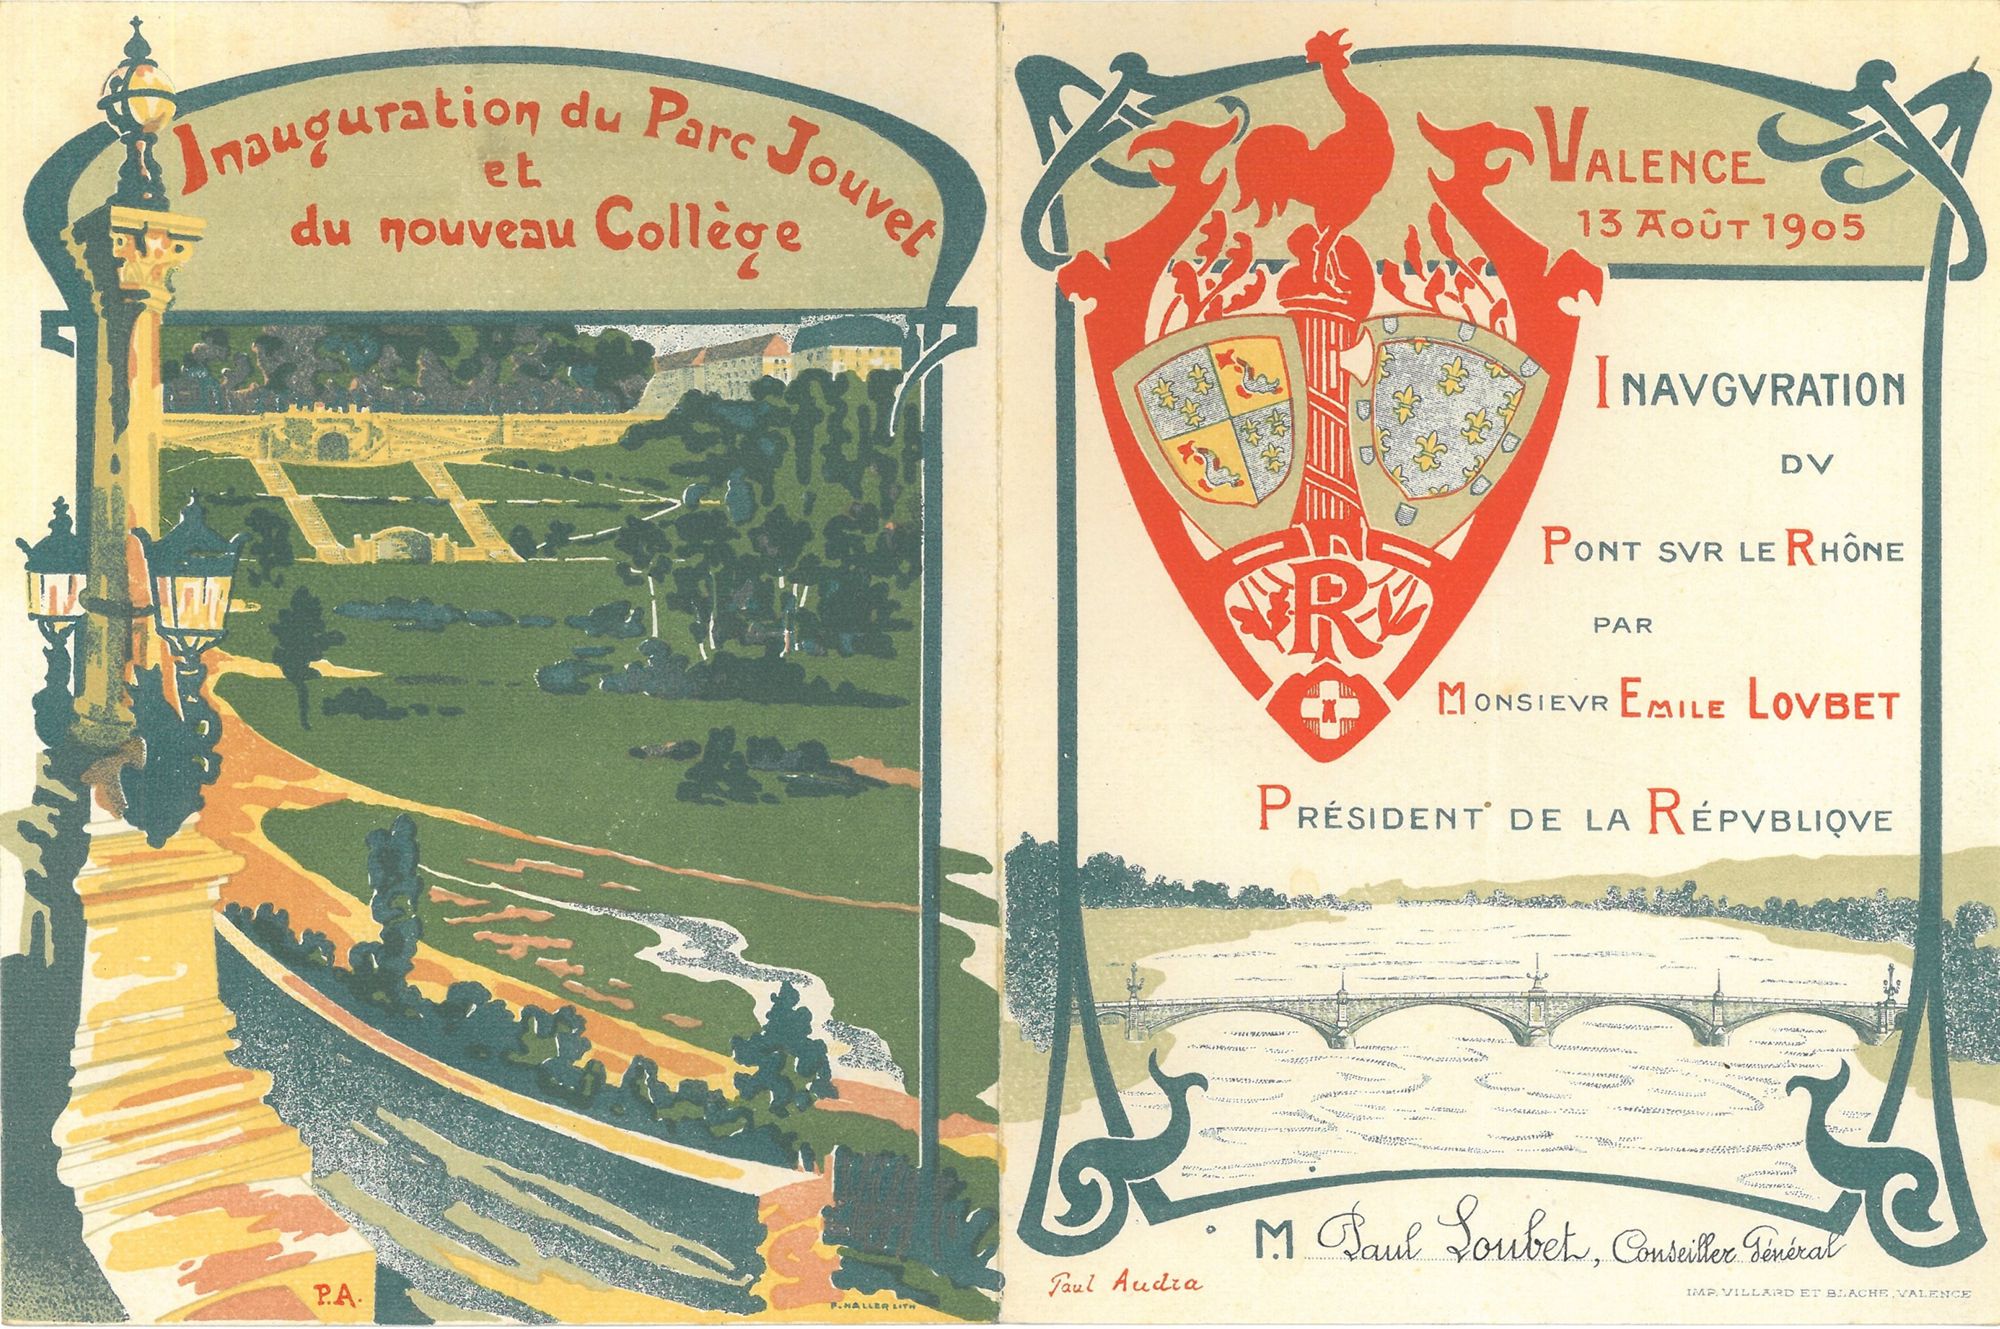 Inauguration du Parc Jouvet
et
du nouveau Collège
P.A.
F. HALLER LITH
VALENCE
13 AOÛT 1905
INAVGVRATION
DV
PONT SVR LE RHÔNE
PAR
MONSIEVR EMILE LOVBET
PRÉSIDENT DE LA RÉPVBLIQVE
R
M. Paul Loubet, Conseiller Général
Paul Audra
IMP. VILLARD ET BLACHE, VALENCE